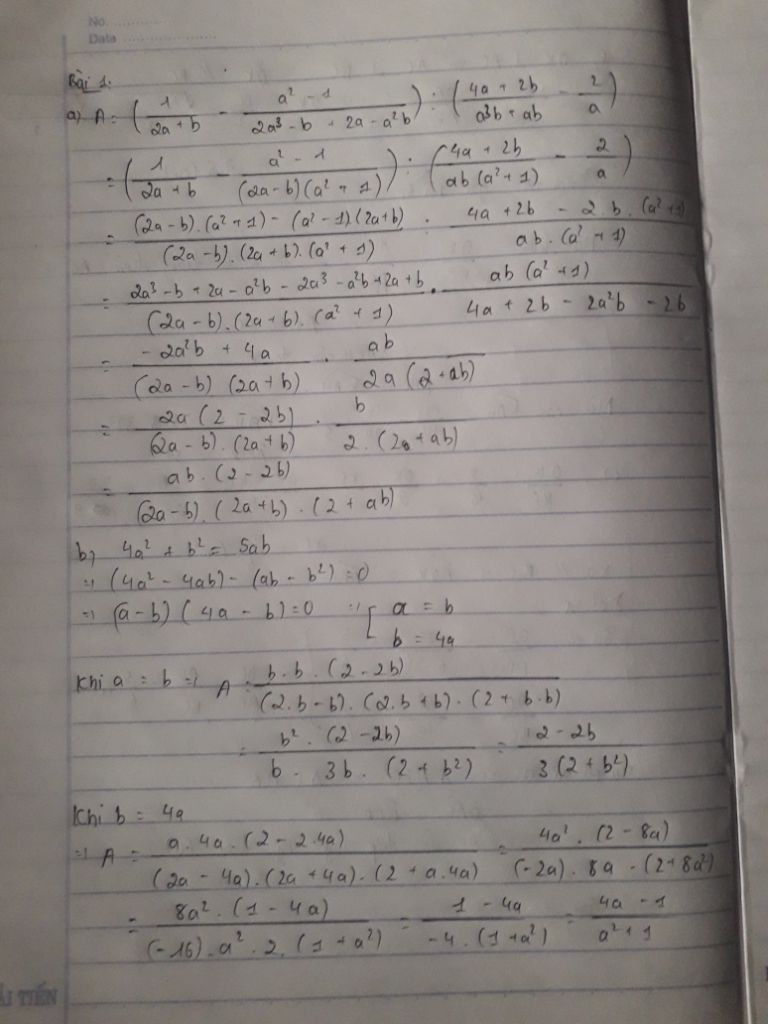 No. ............
Data ....................
Bài 1:
a) A = (1/(2a + b) - (a² - 1)/(2a³ - b + 2a - a²b)) : ((4a + 2b)/(a³b + ab) - 2/a)
= (1/(2a + b) - (a² - 1)/((2a - b)(a² + 1))) : ((4a + 2b)/(ab(a² + 1)) - 2/a)
= ((2a - b).(a² + 1) - (a² - 1).(2a + b))/((2a - b).(2a + b).(a² + 1)) : (4a + 2b - 2.b.(a² + 1))/(ab.(a² + 1))
= (2a³ - b + 2a - a²b - 2a³ - a²b + 2a + b)/((2a - b).(2a + b).(a² + 1)) . (ab(a² + 1))/(4a + 2b - 2a²b - 2b)
= (-2a²b + 4a)/((2a - b)(2a + b)) . ab/(2a(2 + ab))
= (2a(2 - 2b))/((2a - b).(2a + b)) . b/(2.(2a + ab))
= (ab.(2 - 2b))/((2a - b).(2a + b).(2 + ab))
b) 4a² + b² = 5ab
=> (4a² - 4ab) - (ab - b²) = 0
=> (a - b)(4a - b) = 0 => [ a = b
b = 4a
Khi a = b => A = (b.b.(2 - 2b))/((2.b - b).(2.b + b).(2 + b.b))
= (b².(2 - 2b))/(b.3b.(2 + b²)) = (2 - 2b)/(3(2 + b²))
Khi b = 4a
=> A = (a.4a.(2 - 2.4a))/((2a - 4a).(2a + 4a).(2 + a.4a)) = (4a².(2 - 8a))/((-2a).8a.(2 + 8a²))
= (8a².(1 - 4a))/((-16).a².2.(1 + a²)) = (1 - 4a)/(-4.(1 + a²)) = (4a - 1)/(a² + 1)
ẢI TIẾN